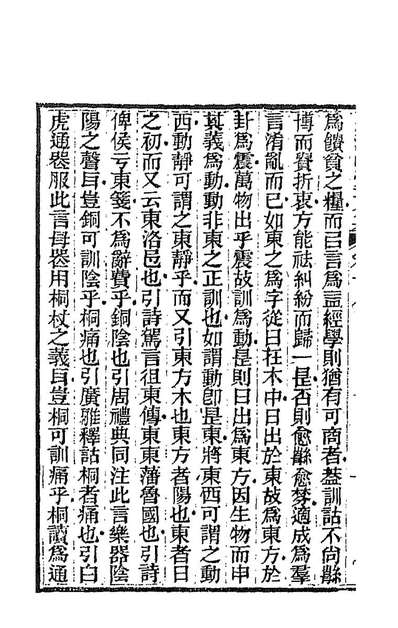 為饋貧之糧而已言為益經學則猶有可商者葢訓詁不尚緐
博而貴折衷方能祛糾紛而歸一是否則愈緐愈棼適成為羣
言淆亂而已如東之為字從日在木中日出於東故為東方於
卦為震萬物出乎震故訓為動是則日出為東方因生物而申
其義為動動非東之正訓也如謂動卽是東將東西可謂之動
西動靜可謂之東靜乎而又引東方木也東方者陽也東者日
之初而又云東洛邑也引詩駕言徂東傳東東藩魯國也引詩
俾侯亏東箋不為辭費乎銅陰也引周禮典同注此言樂器陰
陽之聲目豈銅可訓陰乎桐痛也引廣雅釋詁桐者痛也引白
虎通喪服此言母喪用桐杖之義目豈桐可訓痛乎桐讀為通